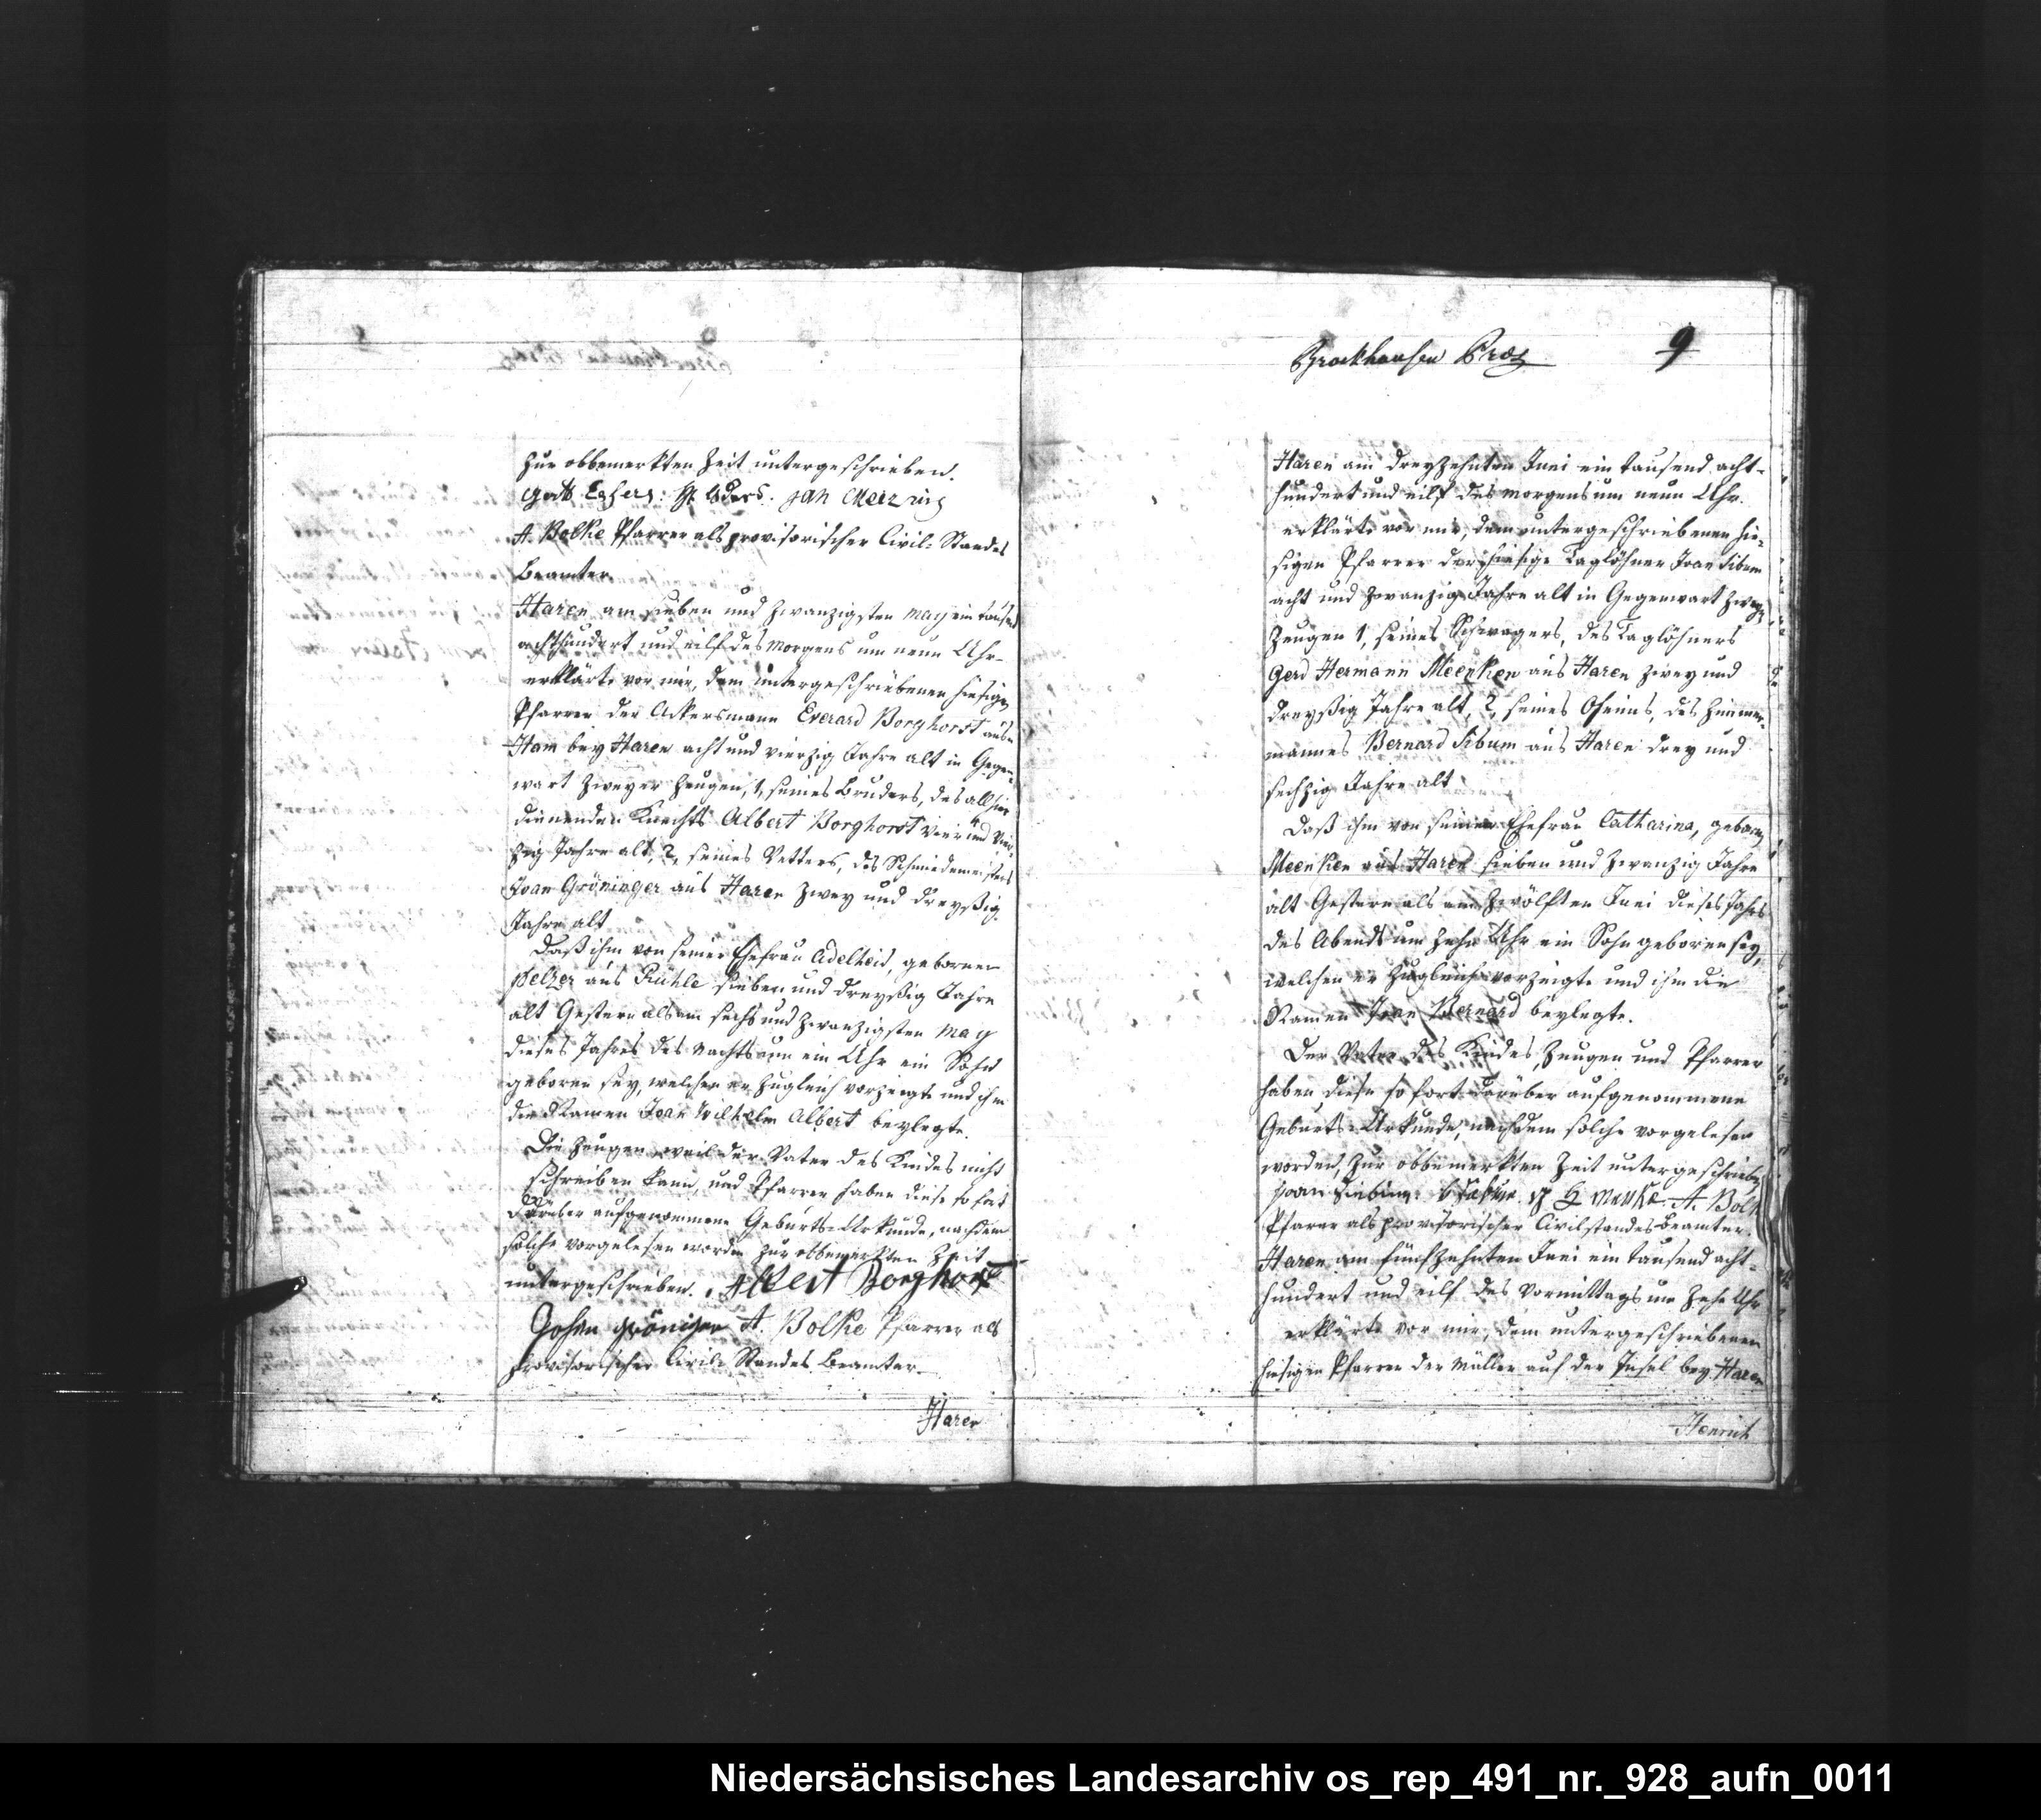 zur obbemerkten Zeit untergeschrieben.
Jan
A. Bolke Pfarrer als provisorischer Civil-Standes
Beamter
Haren am sieben und zwanzigsten May ein tausend
achthundert und eilf des Morgens um neun Uhr
erklärte vor mir, dem untergeschriebenen hiesigen
Pfarrer der Ackersmann Everard Borghorst aus
Ham bey Haren acht und vierzig Jahre alt in Gegen-
wart zweyer Zeugen, 1, seines Bruders, des allhier
dienenden Knechts Albert Borghorst vier und vier-
zig Jahre alt, 2, seines Vetters, des Schmiedemeisters
Joan Gröninger aus Haren zwey und dreyßig
Jahre alt
Daß ihm von seiner Ehefrau Adelheid, geborner
Pelzer aus Rühle sieben und dreyßig Jahre
alt Gestern als am sechs und zwanzigsten May
dieses Jahres des Nachts um ein Uhr ein Sohn
geboren sey, welchen er zugleich vorzeigte und ihm
die Namen Joan Wilhelm Albert beylegte.
Die Zeugen, weil der Vater des Kindes nicht
schreiben kann, und Pfarrer haben diese so fort
darüber aufgenommene Geburts-Urkunde, nachdem
solche vorgelesen worden zur obbemerkten Zeit
untergeschrieben. Albert Borghorst
Johan Gröniger A. Bolke Pfarrer als
provisorischer Civil-Standes Beamter
Haren
Brockhausen 9
Haren am dreyzehnten Juni ein tausend acht-
hundert und eilf des Morgens um neun Uhr
erklärte vor mir, dem untergeschriebenen hie-
sigen Pfarrer der hiesige Taglöhner Joan Sibum
acht und zwanzig Jahre alt in Gegenwart zweyer
Zeugen 1, seines Schwagers, des Taglöhners
Gerd Hermann Meenken aus Haren zwey und
dreyßig Jahre alt, 2, seines Oheims, des Zimmer-
mannes Bernard Sibum aus Haren drey und
sechzig Jahre alt
Daß ihm von seiner Ehefrau Catharina, geborner
Meenken aus Haren sieben und zwanzig Jahre
alt Gestern als am zwölften Juni dieses Jahrs
des Abends um zehn Uhr ein Sohn geboren sey,
welchen er zugleich vorzeigte und ihm die
Namen Joan Bernard beylegte.
Der Vater des Kindes, Zeugen und Pfarrer
haben diese so fort darüber aufgenommene
Geburts-Urkunde, nachdem solche vorgelesen
worden, zur obbemerkten Zeit untergeschrieben
A. Bolke
Pfarrer als provisorischer Civilstandes Beamter.
Haren am fünfzehnten Juni ein tausend acht-
hundert und eilf des Vormittags um zehn Uhr
erklärte vor mir, dem untergeschriebenen
hiesigen Pfarrer der Müller auf der Insel bey Haren
Henrich
Niedersächsisches Landesarchiv os_rep_491_nr._928_aufn_0011